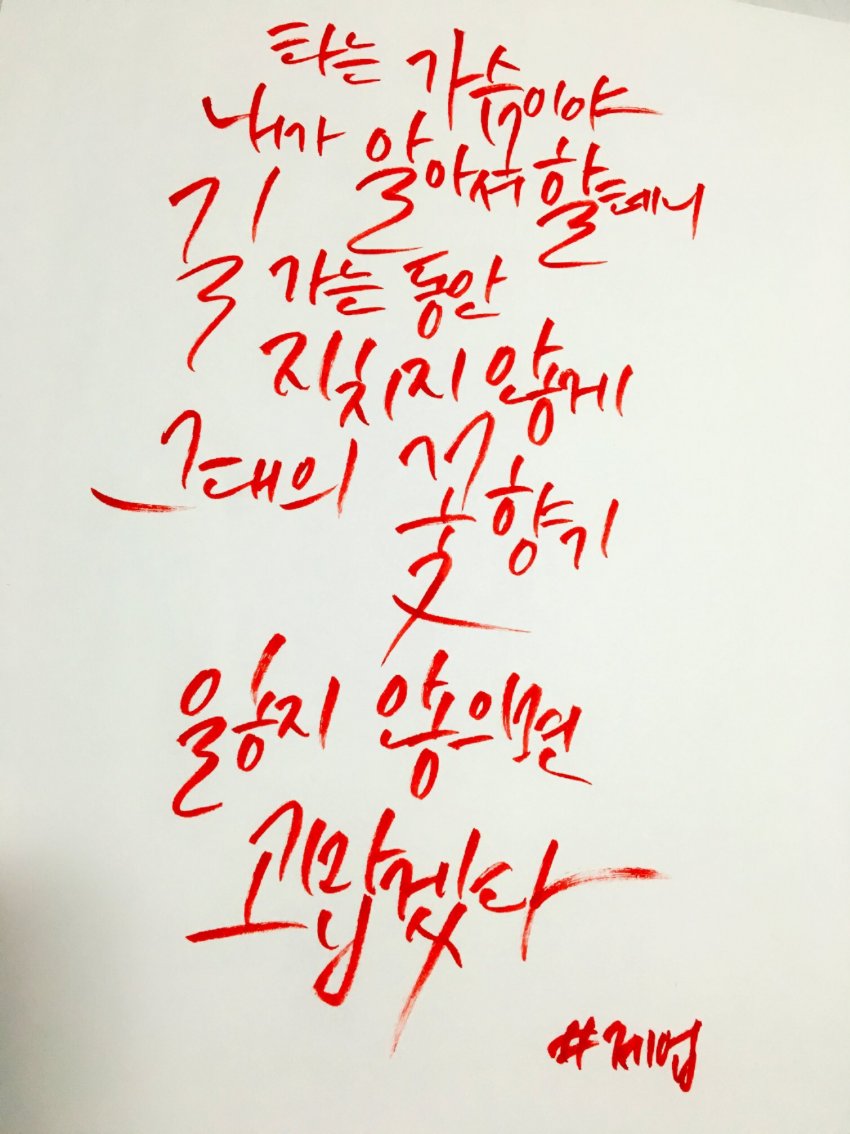 타는 가슴이야
내가 알아서 할테니
길 가는 동안
지치지 않게
그대의 꽃향기
잃지 않으면
고맙겠다
#제업